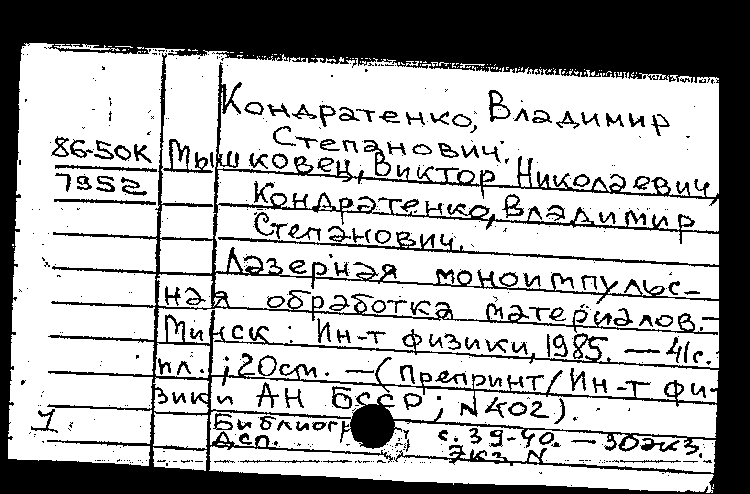 Кондратенко, Владимир
Степанович.
86-50К Мышковец, Виктор Николаевич,
7952 Кондратенко, Владимир
Степанович.
Лазерная моноимпульс-
ная обработка материалов.-
Минск: Ин-т физики, 1985. — 41с.
ил.; 20см. — (Препринт/Ин-т фи-
зики АН БССР; N402).
1 Библиогр с. 39-40. — 30экз.
Дсп. Экз. N